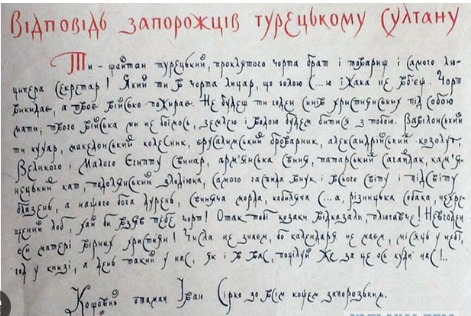 Відповідь запорожців турецькому султану
Ти - шайтан турецький, проклятого чорта брат і товариш і самого лю-
ципера секретар! Який ти в чорта лицар, що голою с...ю їжака не вб'єш. Чорт
викидає, а твоє військо пожирає. Не будеш ти годен синів християнських під собою
мати, твого війська ми не боїмось, землею і водою будем битися з тобою. Вавілонський
ти кухар, македонський колесник, єрусалимський броварник, александрійський козолуп,
Великого і Малого Єгипту свинар, арм'янська свиня, татарський сагайдак, кам'я-
нецький кат, подолянський злодіюка, самого гаспида внук і всього світу і підсвіту
блазень, а нашого бога дурень, свиняча морда, кобиляча с...а, різницька собака, нехре-
щений лоб, хай би взяв тебе чорт! Отак тобі козаки відказали, плюгавче! Невгоден
єси матері вірних християн! Числа не знаєм, бо календаря не маєм, місяць у небі,
год у книзі, а день такий у нас, як і в вас, поцілуй же за це ось куди нас!..
Кошовий отаман Іван Сірко зо всім кошем запорозьким.